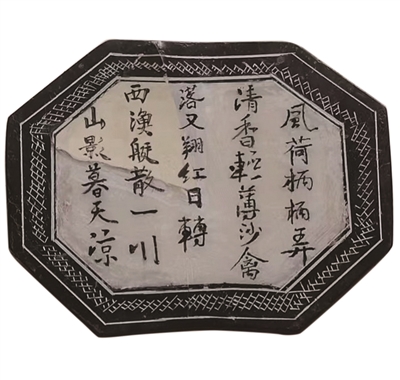 風荷柄柄弄
清香輕薄沙禽
落又翔紅日轉
西漁艇散一川
山影暮天涼